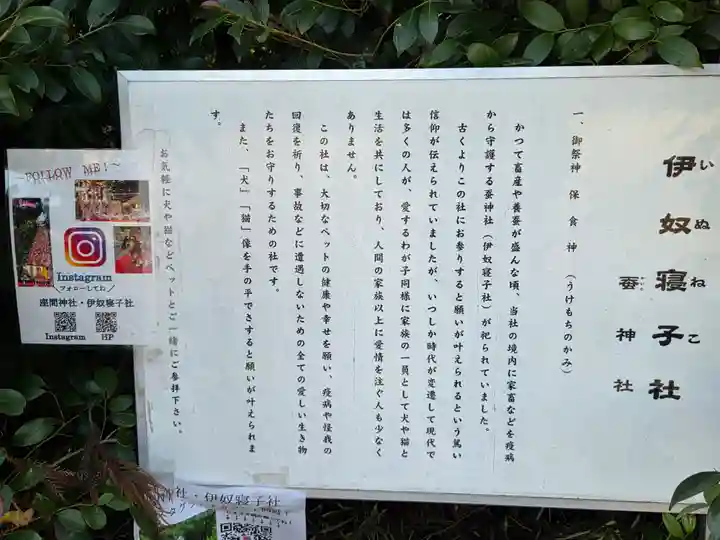 伊奴寝子社
いぬねこ
蚕神社
一、御祭神　保食神　（うけもちのかみ）
かつて畜産や養蚕が盛んな頃、当社の境内に家畜などを疫病
から守護する蚕神社（伊奴寝子社）が祀られていました。
古くよりこの社にお参りすると願いが叶えられるという篤い
信仰が伝えられていましたが、いつしか時代が変遷して現代で
は多くの人が、愛するわが子同様に家族の一員として犬や猫と
生活を共にしており、人間の家族以上に愛情を注ぐ人も少なく
ありません。
この社は、大切なペットの健康や幸せを願い、疫病や怪我の
回復を祈り、事故などに遭遇しないための全ての愛しい生き物
たちをお守りするための社です。
また、「犬」「猫」像を手の平でさすると願いが叶えられま
す。
お気軽に犬や猫などペットとご一緒にご参拝下さい。
~FOLLOW ME!~
Instagram
＼フォローしてね／
座間神社・伊奴寝子社
Instagram
HP
神社・伊奴寝子社